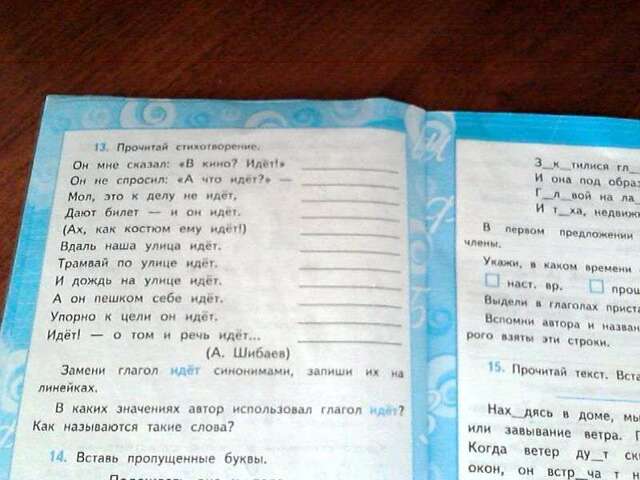 13. Прочитай стихотворение.
Он мне сказал: «В кино? Идёт!»
Он не спросил: «А что идёт?» —
Мол, это к делу не идёт,
Дают билет — и он идёт.
(Ах, как костюм ему идёт!)
Вдаль наша улица идёт.
Трамвай по улице идёт.
И дождь на улице идёт.
А он пешком себе идёт.
Упорно к цели он идёт.
Идёт! — о том и речь идёт...
(А. Шибаев)
Замени глагол идёт синонимами, запиши их на
линейках.
В каких значениях автор использовал глагол идёт?
Как называются такие слова?
14. Вставь пропущенные буквы.
З__к__тилися гл
И она под
Г__л__вой на
И т__ха,
В первом предложении
члены.
Укажи, в каком времени
наст. вр.
Выдели в глаголах
Вспомни автора и
рого взяты эти строки.
15. Прочитай текст.
Нах__дясь в доме, мы
или завывание ветра.
Когда ветер ду__т
окон, он встр__ча т